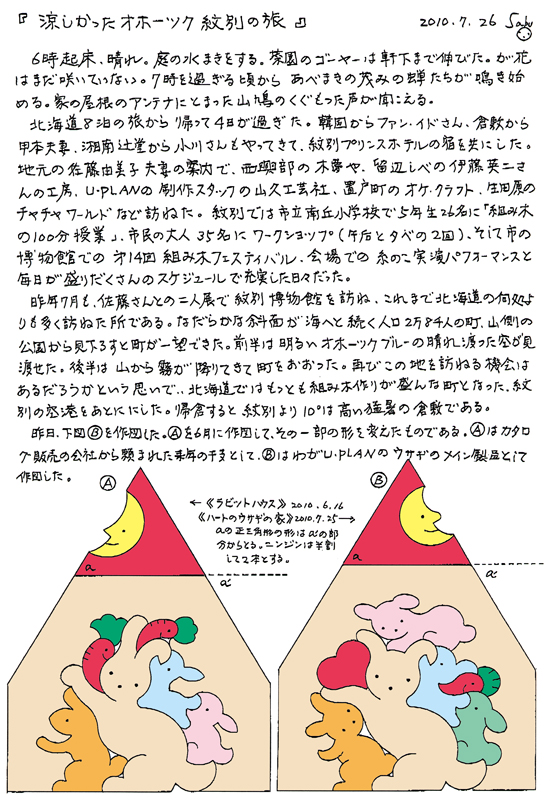 『 涼しかった オホーツク 紋別の旅 』 2010.7.26 Sabu
6時起床、晴れ。庭の水まきをする。菜園のゴーヤーは軒下まで伸びた。が花
はまだ咲いていない。7時を過ぎる頃から あべまきの茂みの蝉たちが鳴き始
める。家の屋根のアンテナにとまった山鳩のくぐもった声が聞こえる。
北海道8泊の旅から帰って4日が過ぎた。韓国からファン・イドさん、倉敷から
甲本夫妻、湘南辻堂から小川さんもやってきて、紋別プリンスホテルの宿を共にした。
地元の佐藤由美子夫妻の案内で、西興部の木夢や、留辺しべの伊藤英二さ
んの工房、U-PLANの制作スタッフの山久工芸社、置戸町のオケ・クラフト、生田原の
チャチャワールドなど訪ねた。紋別では市立南丘小学校で5年生26名に「組み木
の100分授業」、市民の大人35名にワークショップ(午后と夕べの2回)、そして市の
博物館での第14回組み木フェスティバル、会場での糸のこ実演パフォーマンスと
毎日が盛りだくさんのスケジュールで充実した日々だった。
昨年7月も、佐藤さんとの二人展で紋別博物館を訪ね、これまで北海道の何処よ
りも多く訪ねた所である。なだらかな斜面が海へと続く人口2万84人の町、山側の
公園から見下ろすと町が一望できた。前半は明るいオホーツクブルーの晴れ渡った空が見
渡せた。後半は山から霧が降りてきて町をおおった。再びこの地を訪ねる機会は
あるだろうかという思いで、北海道ではもっとも組み木作りが盛んな町となった、紋
別の空港をあとにした。帰倉すると紋別より10°は高い猛暑の倉敷である。
昨日、下図Ⓑを作図した。Ⓐを6月に作図して、その一部の形を変えたものである。Ⓐはカタロ
グ販売の会社から頼まれた来年の干支として、ⒷはわがU-PLANのウサギのメイン製品として
作図した。
Ⓐ
Ⓑ
←《ラビットハウス》2010.6.16
《ハートのウサギの家》2010.7.25→
aの正三角形の形はa'の部
分からとる。ニンジンは半割
して2本とする。
a
a'
a
a'